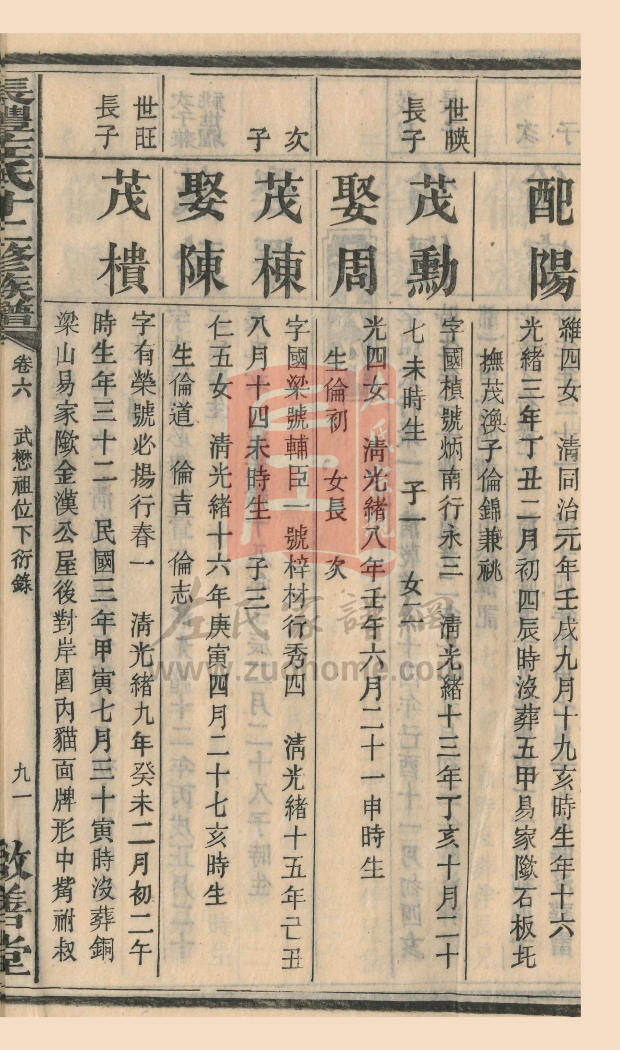 配陽
雅四女 清同治元年壬戌九月十九亥時生年十六
光緒三年丁丑二月初四辰時沒葬五甲易家隞石板坵
撫茂渙子倫錦兼祧
世暎
長子
茂勳
字國楨號炳南行永三 清光緒十三年丁亥十月二十
七未時生 子一 女二
娶周
光四女 清光緒八年壬午六月二十一申時生
生倫初 女長 次
次
子
茂棟
字國梁號輔臣一號梓材行秀四 清光緒十五年己丑
八月十四未時生 子三
娶陳
仁五女 清光緒十六年庚寅四月二十七亥時生
生倫道 倫吉 倫志
世旺
長子
茂樻
字有榮號必揚行春一 清光緒九年癸未二月初二午
時生年三十二 民國三年甲寅七月三十寅時沒葬銅
梁山易家隞金漢公屋後對岸園內貓面牌形中觜祔叔
左氏十二修族譜
卷六
武懋祖位下衍錄
九一
敦善堂
左氏家譜網
www.zuohome.com